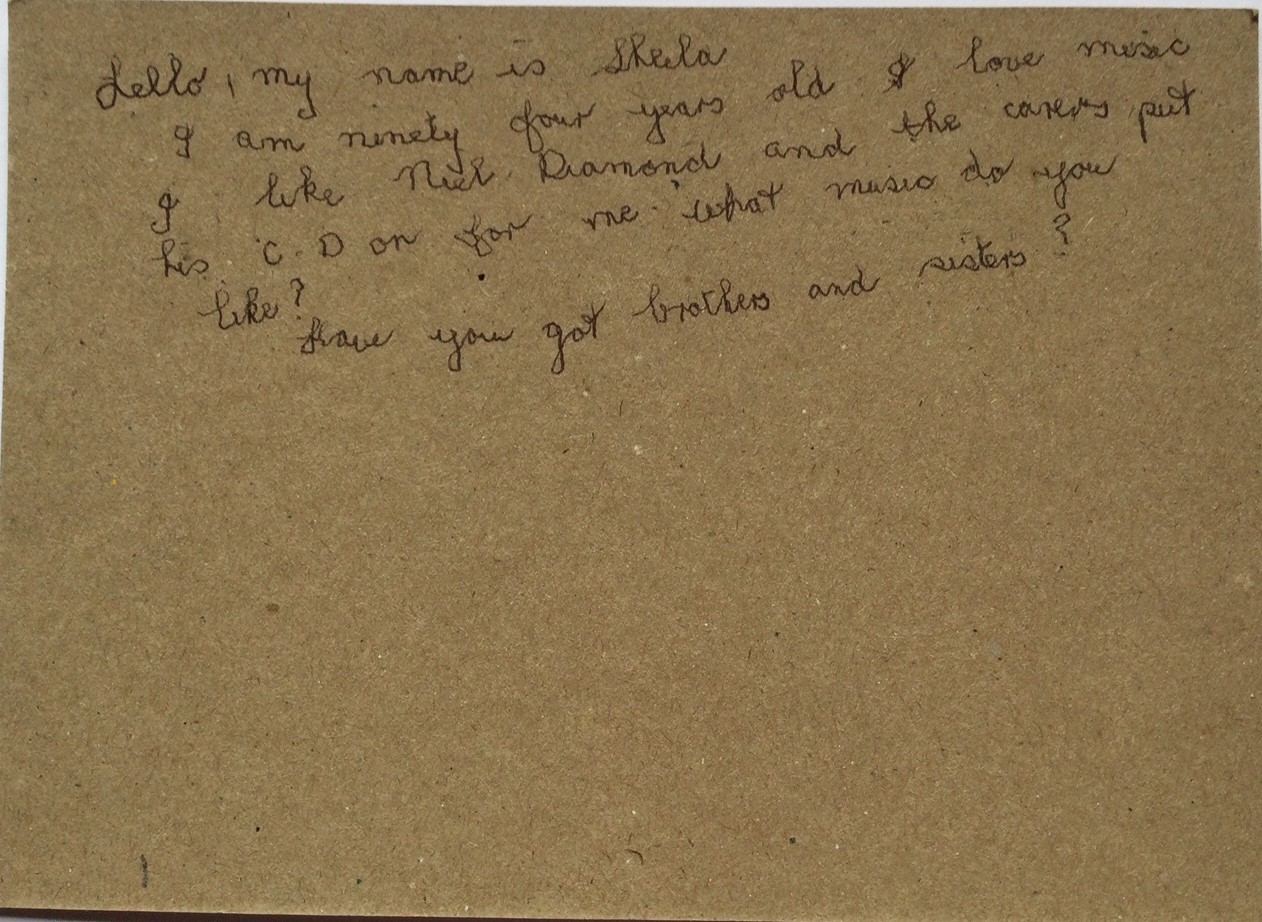 Hello, my name is Sheila
I am ninety four years old I love music
I like Niel Diamond and the carers put
his C.D on for me. what music do you
like?
Have you got brothers and sisters?